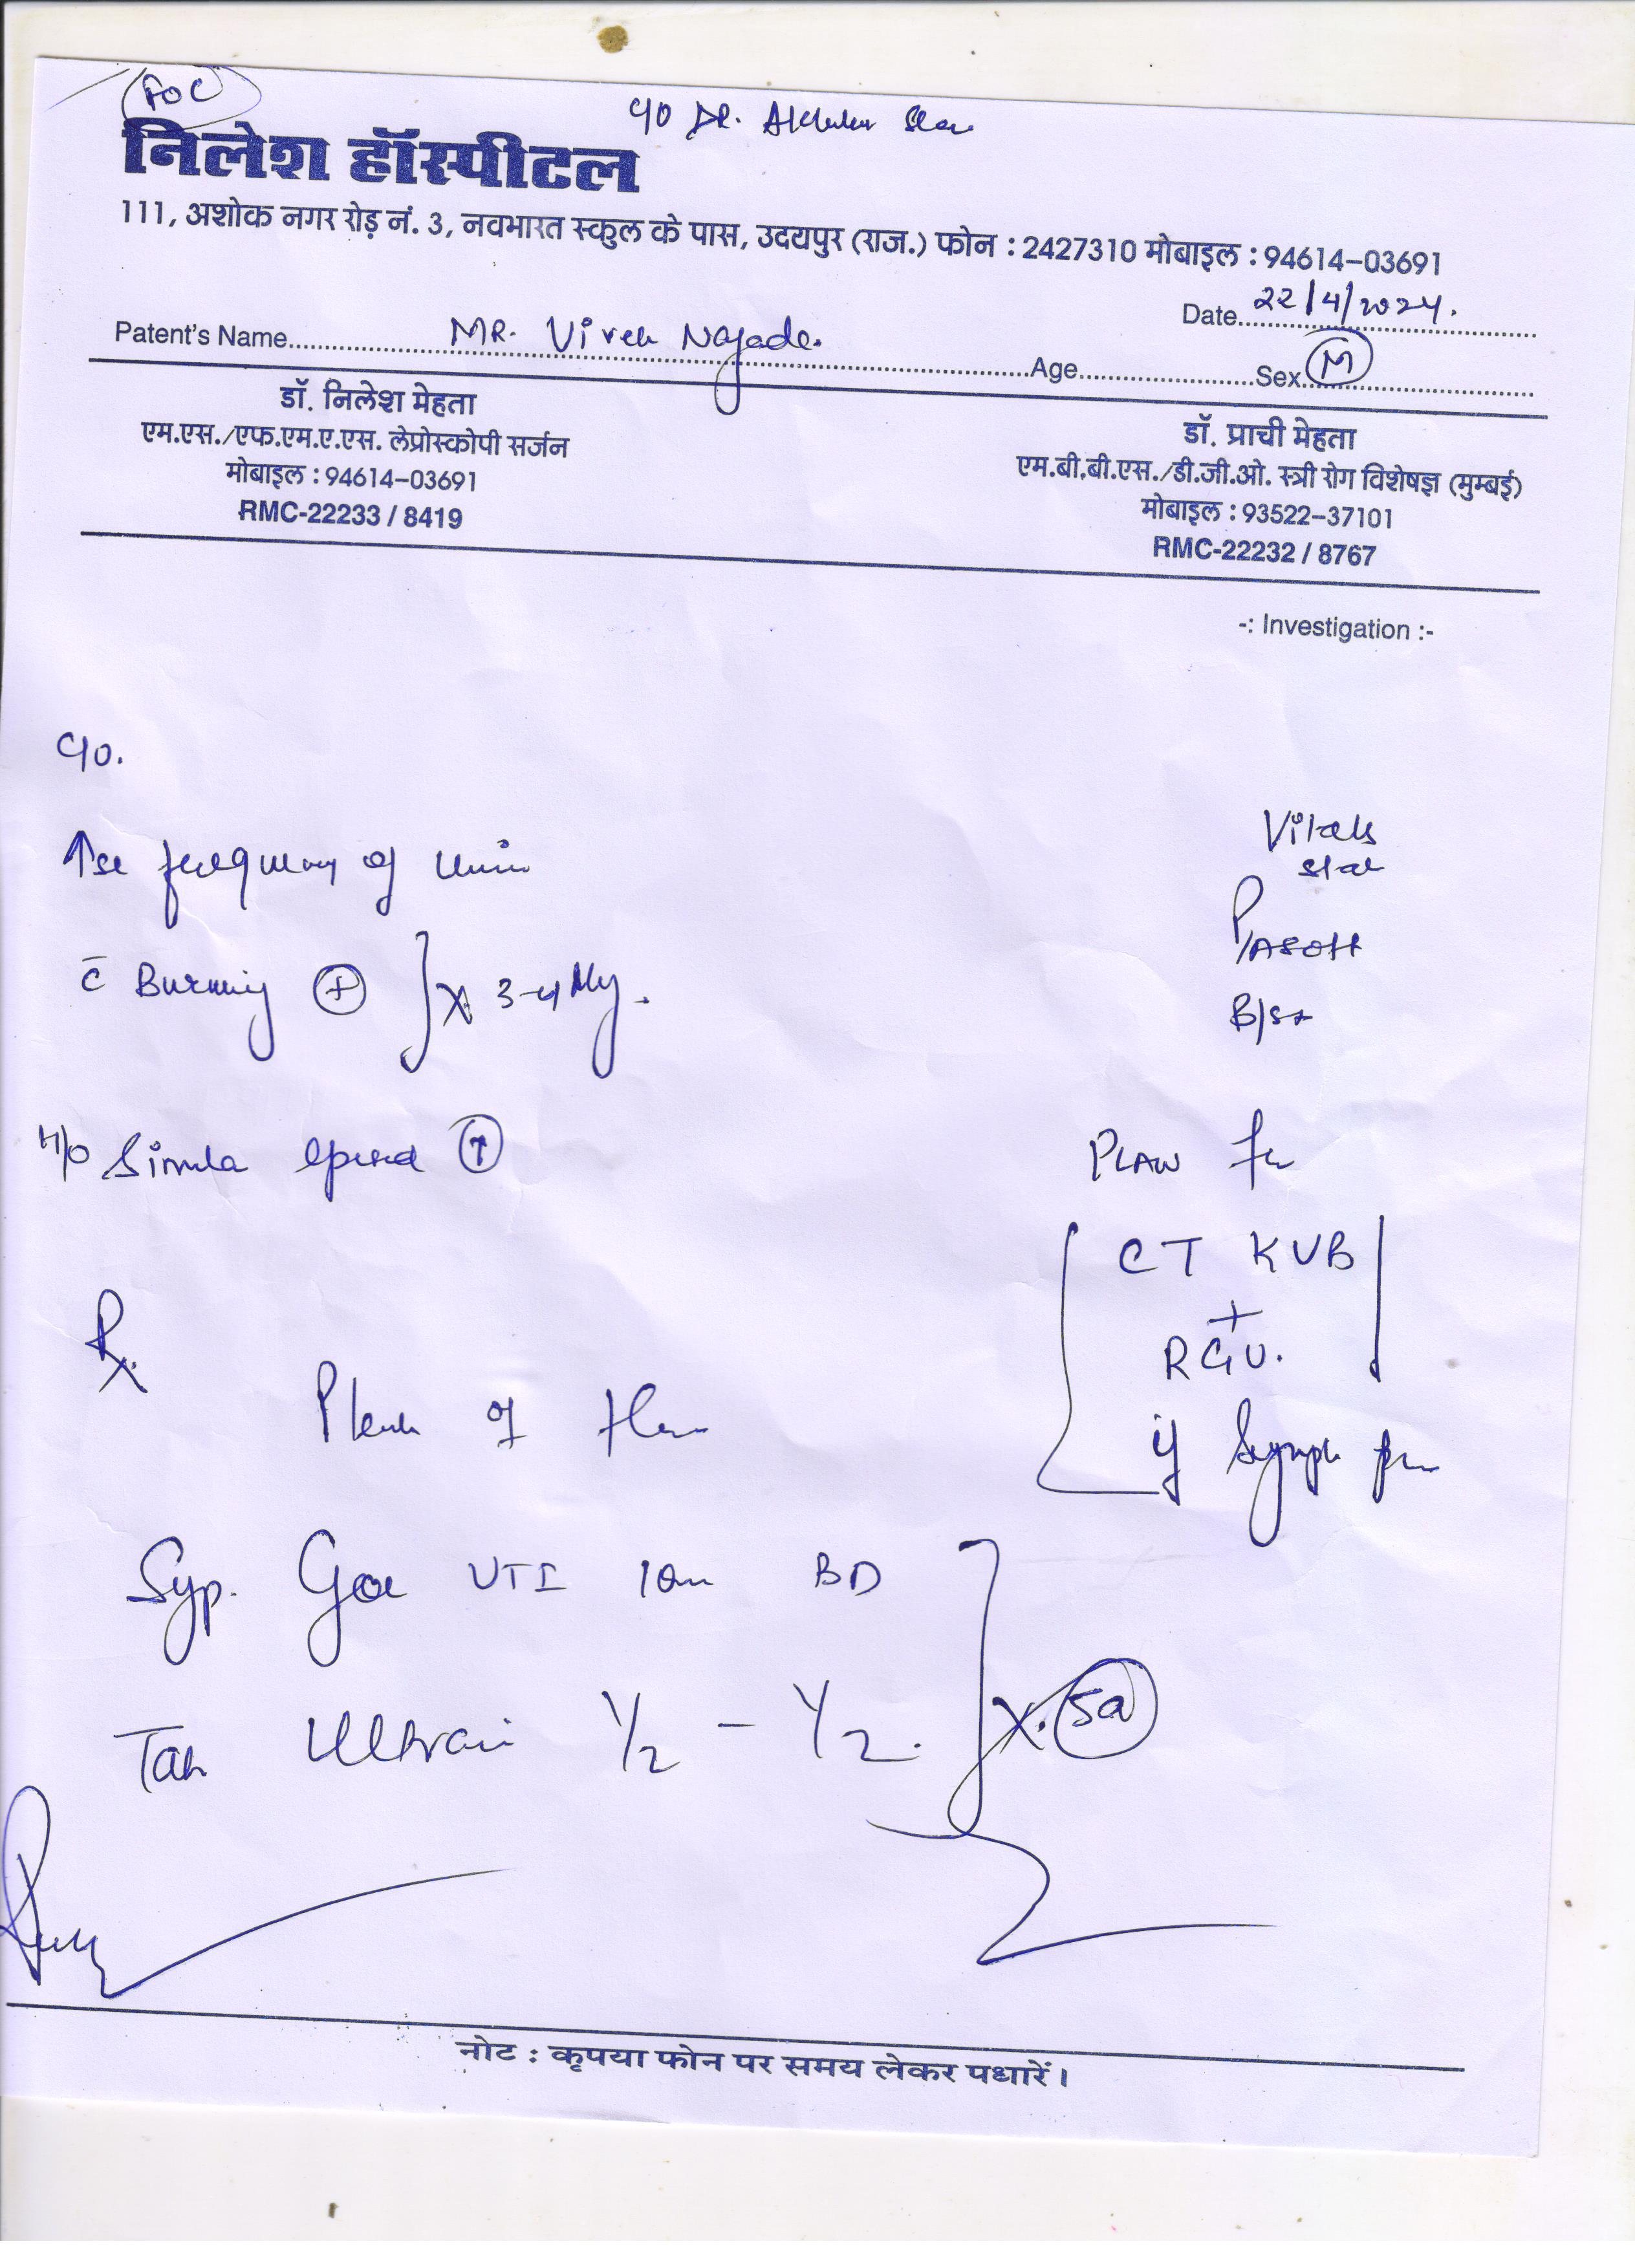 FOC
C/O DR.
निलेश हॉस्पीटल
111, अशोक नगर रोड़ नं. 3, नवभारत स्कुल के पास, उदयपुर (राज.) फोन : 2427310 मोबाइल : 94614-03691
Date 22/4/2024.
Patent's Name MR. Vivek Nagada. Age Sex M
डॉ. निलेश मेहता
एम.एस./एफ.एम.ए.एस. लेप्रोस्कोपी सर्जन
मोबाइल : 94614-03691
RMC-22233 / 8419
डॉ. प्राची मेहता
एम.बी.बी.एस./डी.जी.ओ. स्त्री रोग विशेषज्ञ (मुम्बई)
मोबाइल : 93522-37101
RMC-22232 / 8767
-: Investigation :-
C/O.
↑se frequency of urine
c̄ Burning (+) } x 3-4
H/O Similar episode
Vitals
P/A SOFT
PLAN for
CT KUB
+
RGU.
if
Rx
of
Syp. UTI 10ml BD
Tab 1/2 - 1/2. } x. 5d
नोट : कृपया फोन पर समय लेकर पधारें।